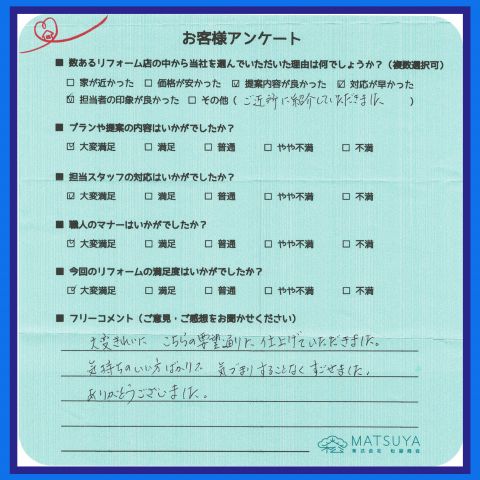 お客様アンケート
■ 数あるリフォーム店の中から当社を選んでいただいた理由は何でしょうか?(複数選択可)
□ 家が近かった □ 価格が安かった ☑ 提案内容が良かった ☑ 対応が早かった
☑ 担当者の印象が良かった □ その他( ご近所に紹介していただきました )
■ プランや提案の内容はいかがでしたか?
☑ 大変満足 □ 満足 □ 普通 □ やや不満 □ 不満
■ 担当スタッフの対応はいかがでしたか?
☑ 大変満足 □ 満足 □ 普通 □ やや不満 □ 不満
■ 職人のマナーはいかがでしたか?
☑ 大変満足 □ 満足 □ 普通 □ やや不満 □ 不満
■ 今回のリフォームの満足度はいかがですか?
☑ 大変満足 □ 満足 □ 普通 □ やや不満 □ 不満
■ フリーコメント(ご意見・ご感想をお聞かせください)
大変きれいに こちらの要望通りに 仕上げていただきました。
気持ちのいい方ばかりで 気づまりすることなく すごせました。
ありがとうございました。
MATSUYA
株式会社